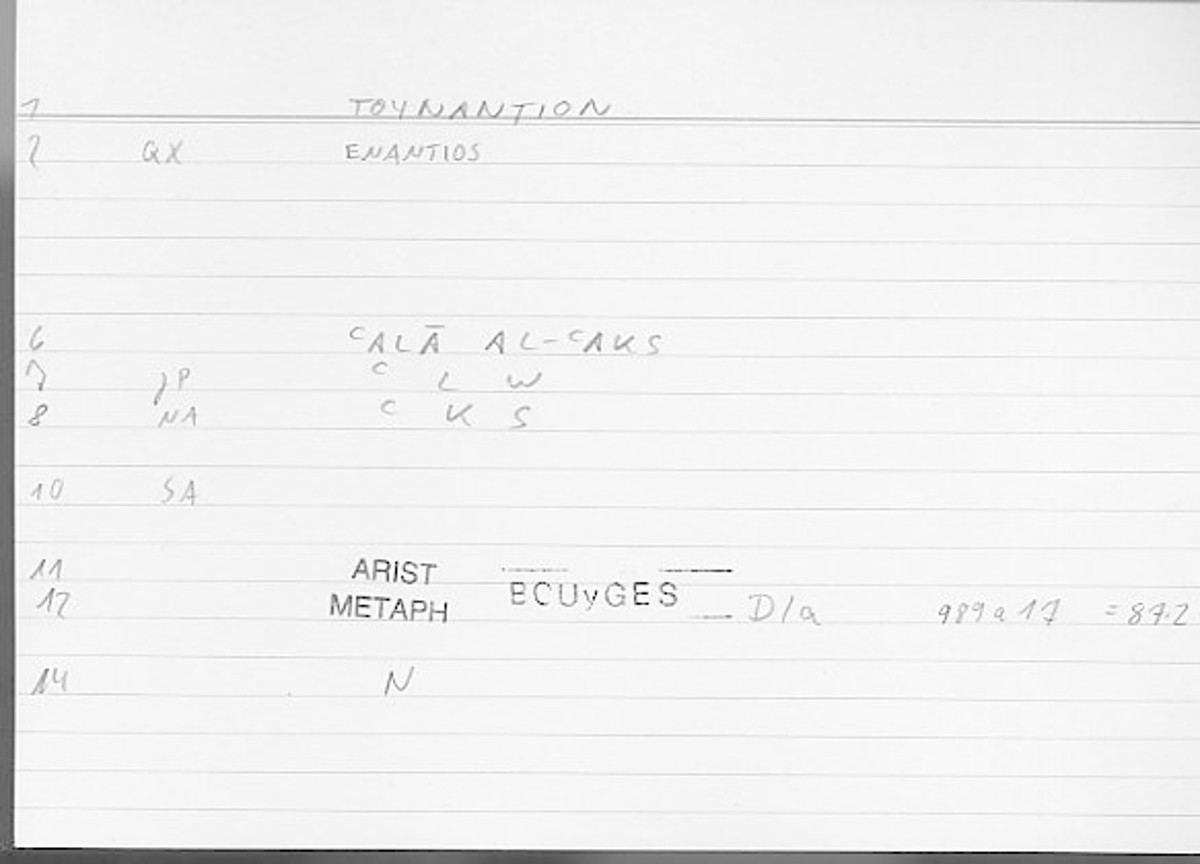 1 TOYNANTION
2 QX ENANTIOS
6 ᶜALĀ AL-ᶜAKS
7 JP ᶜ L W
8 NA ᶜ K S
10 SA
11 ARIST
12 METAPH BCUyGES D/a 989a17 = 87.2
14 N